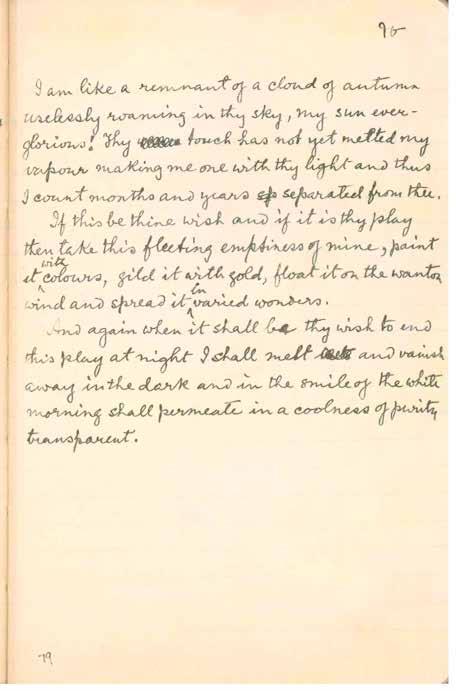 95
I am like a remnant of a cloud of autumn
uselessly roaming in thy sky, my sun ever-
glorious! Thy touch has not yet melted my
vapour making me one with thy light and thus
I count months and years separated from thee.
If this be thine wish and if it is thy play
then take this fleeting emptiness of mine, paint
it with colours, gild it with gold, float it on the wanton
wind and spread it in varied wonders.
And again when it shall be thy wish to end
this play at night I shall melt and vanish
away in the dark and in the smile of the white
morning shall permeate in a coolness of purity
transparent.
79